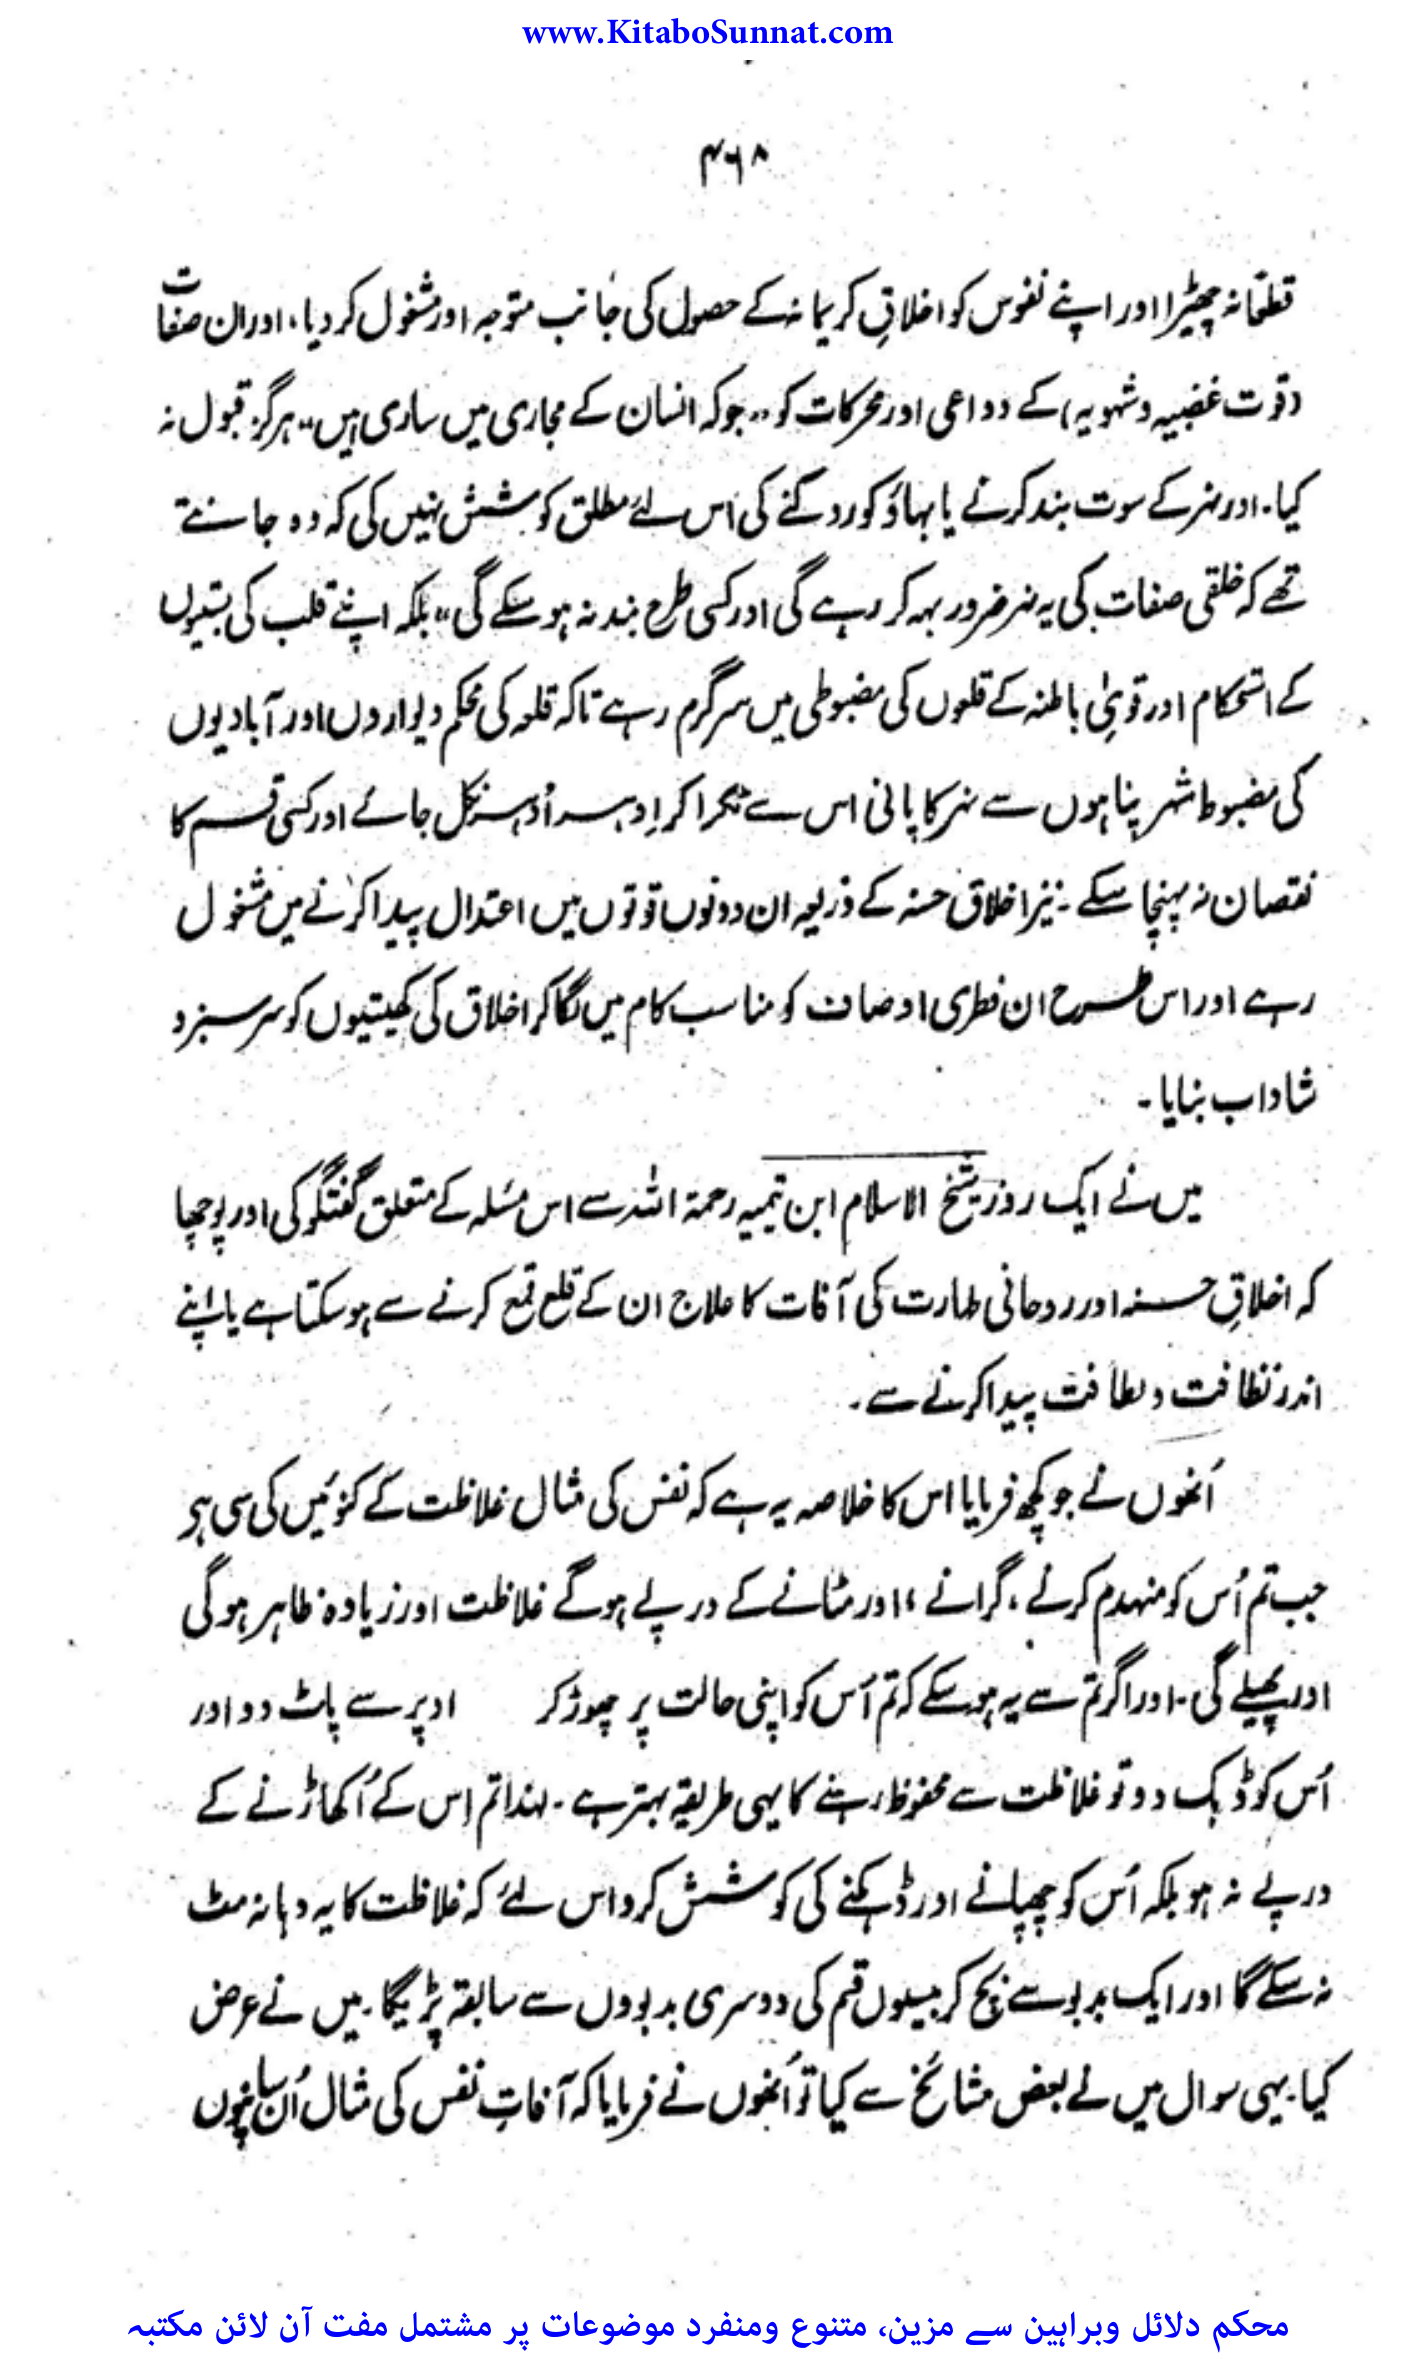 www.KitaboSunnat.com
۴۶۸
قطعًا نہ چھیڑا اور اپنے نفوس کو اخلاقِ کریمانہ کے حصول کی جانب متوجہ اور مشغول کر دیا، اور ان صفات
(قوت غضبیہ و شہویہ) کے دواعی اور محرکات کو "جو کہ انسان کے مجاری میں ساری ہیں" ہرگز قبول نہ
کیا۔ اور نہر کے سوت بند کرنے یا بہاؤ کو روکنے کی اس لئے مطلق کوشش نہیں کی کہ وہ جانتے
تھے کہ خلقی صفات کی یہ نہر ضرور بہہ کر رہے گی اور کسی طرح بند نہ ہو سکے گی" بلکہ اپنے قلب کی بستیوں
کے استحکام اور قویٰ باطنہ کے قلعوں کی مضبوطی میں سرگرم رہے تاکہ قلعہ کی محکم دیواروں اور آبادیوں
کی مضبوط شہر پناہوں سے نہر کا پانی اس سے ٹکرا کر اِدہر اُدہر نکل جائے اور کسی قسم کا
نقصان نہ پہنچا سکے۔ نیز اخلاق حسنہ کے ذریعہ ان دونوں قوتوں میں اعتدال پیدا کرنے میں مشغول
رہے اور اس طرح ان فطری اوصاف کو مناسب کام میں لگا کر اخلاق کی کھیتیوں کو سرسبز و
شاداب بنایا۔
میں نے ایک روز شیخ الاسلام ابن تیمیہ رحمۃ اللہ سے اس مسئلہ کے متعلق گفتگو کی اور پوچھا
کہ اخلاقِ حسنہ اور روحانی طہارت کی آفات کا علاج ان کے قلع قمع کرنے سے ہو سکتا ہے یا اپنے
اندر نظافت و لطافت پیدا کرنے سے۔
اُنھوں نے جو کچھ فرمایا اس کا خلاصہ یہ ہے کہ نفس کی مثال غلاظت کے کنوئیں کی سی ہے
جب تم اُس کو منہدم کرنے، گرانے، اور مٹانے کے درپے ہوگے غلاظت اور زیادہ ظاہر ہوگی
اور پھیلے گی۔ اور اگر تم سے یہ ہو سکے کہ تم اُس کو اپنی حالت پر چھوڑ کر اوپر سے پاٹ دو اور
اُس کو ڈہک دو تو غلاظت سے محفوظ رہنے کا یہی طریقہ بہتر ہے۔ لہٰذا تم اِس کے اُکھاڑنے کے
درپے نہ ہو بلکہ اُس کو چھپانے اور ڈہکنے کی کوشش کرو اس لئے کہ غلاظت کا یہ دہانہ مٹ
نہ سکے گا اور ایک بدبو سے بچ کر بیسیوں قسم کی دوسری بدبوؤں سے سابقہ پڑیگا۔ میں نے عرض
کیا۔ یہی سوال میں نے بعض مشائخ سے کیا تو اُنھوں نے فرمایا کہ آفاتِ نفس کی مثال اُن سانپوں
محکم دلائل وبراہین سے مزین، متنوع ومنفرد موضوعات پر مشتمل مفت آن لائن مکتبہ